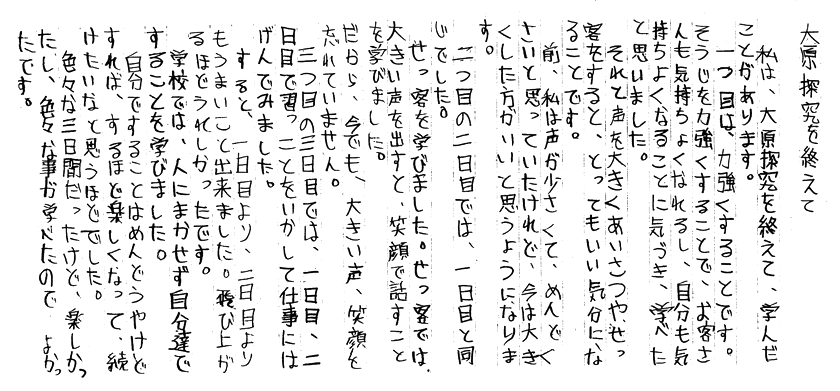 大原探究を終えて
私は、大原探究を終えて、学んだ
ことがあります。
一つ目は、力強くすることです。
そうじを力強くすることで、お客さ
んも気持ちよくなれるし、自分も気
持ちよくなることに気づき、学べた
と思いました。
それと声を大きくあいさつや、せっ
客をすると、とってもいい気分にな
ることです。
前、私は声が少さくて、めんどく
さいと思っていたけれど、今は大き
くした方がいいと思うようになりま
す。
二つ目の二日目では、一日目と同
じでした。
せっ客を学びました。せっ客では、
大きい声を出すと、笑顔で話すこと
を学びました。
だから、今でも、大きい声、笑顔を
忘れていません。
三つ目の三日目では、一日目、二
日目で習っことをいかして仕事には
げんでみました。
すると、一日目より、二日目より
もうまいこと出来ました。飛び上が
るほどうれしかったです。
学校では、人にまかせず自分達で
することを学びました。
自分ですることはめんどうやけど
すれば、するほど楽しくなって、続
けたいなと思うほどでした。
色々な三日間だったけど、楽しかっ
たし、色々な事が学べたので よかっ
たです。